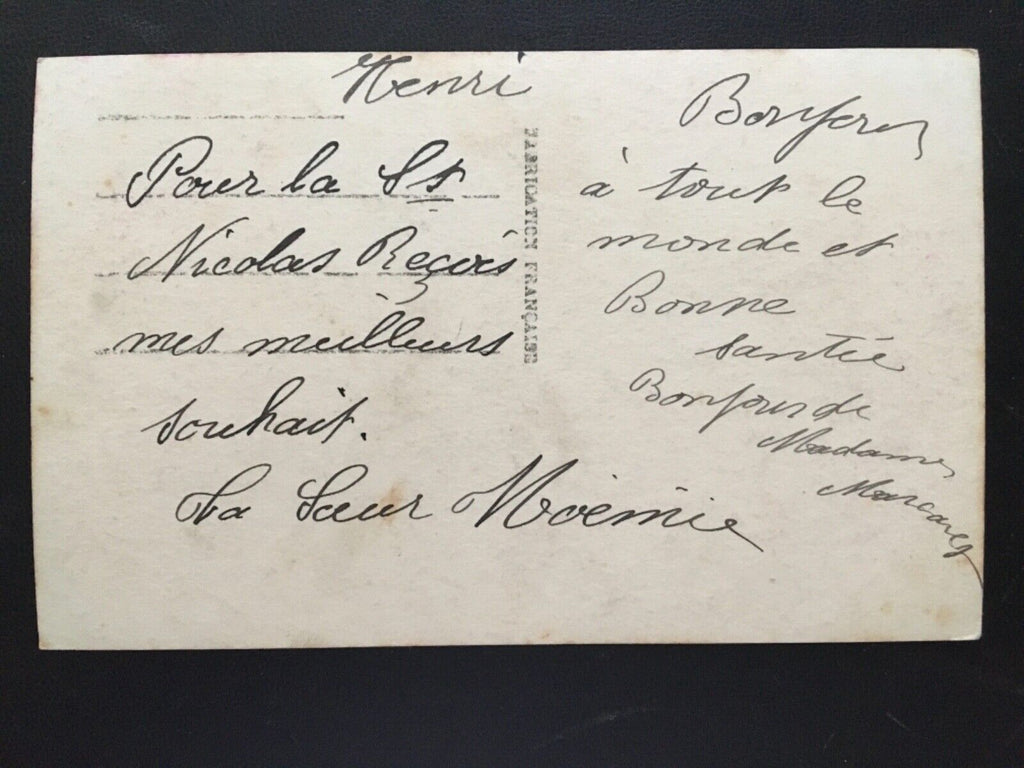 Henri
Pour la St
Nicolas Reçois
mes meilleurs
souhait.
Ta Sœur Noémie
FABRICATION FRANÇAISE
Bonjour
à tout le
monde et
Bonne
santée
Bonjour de
Madame